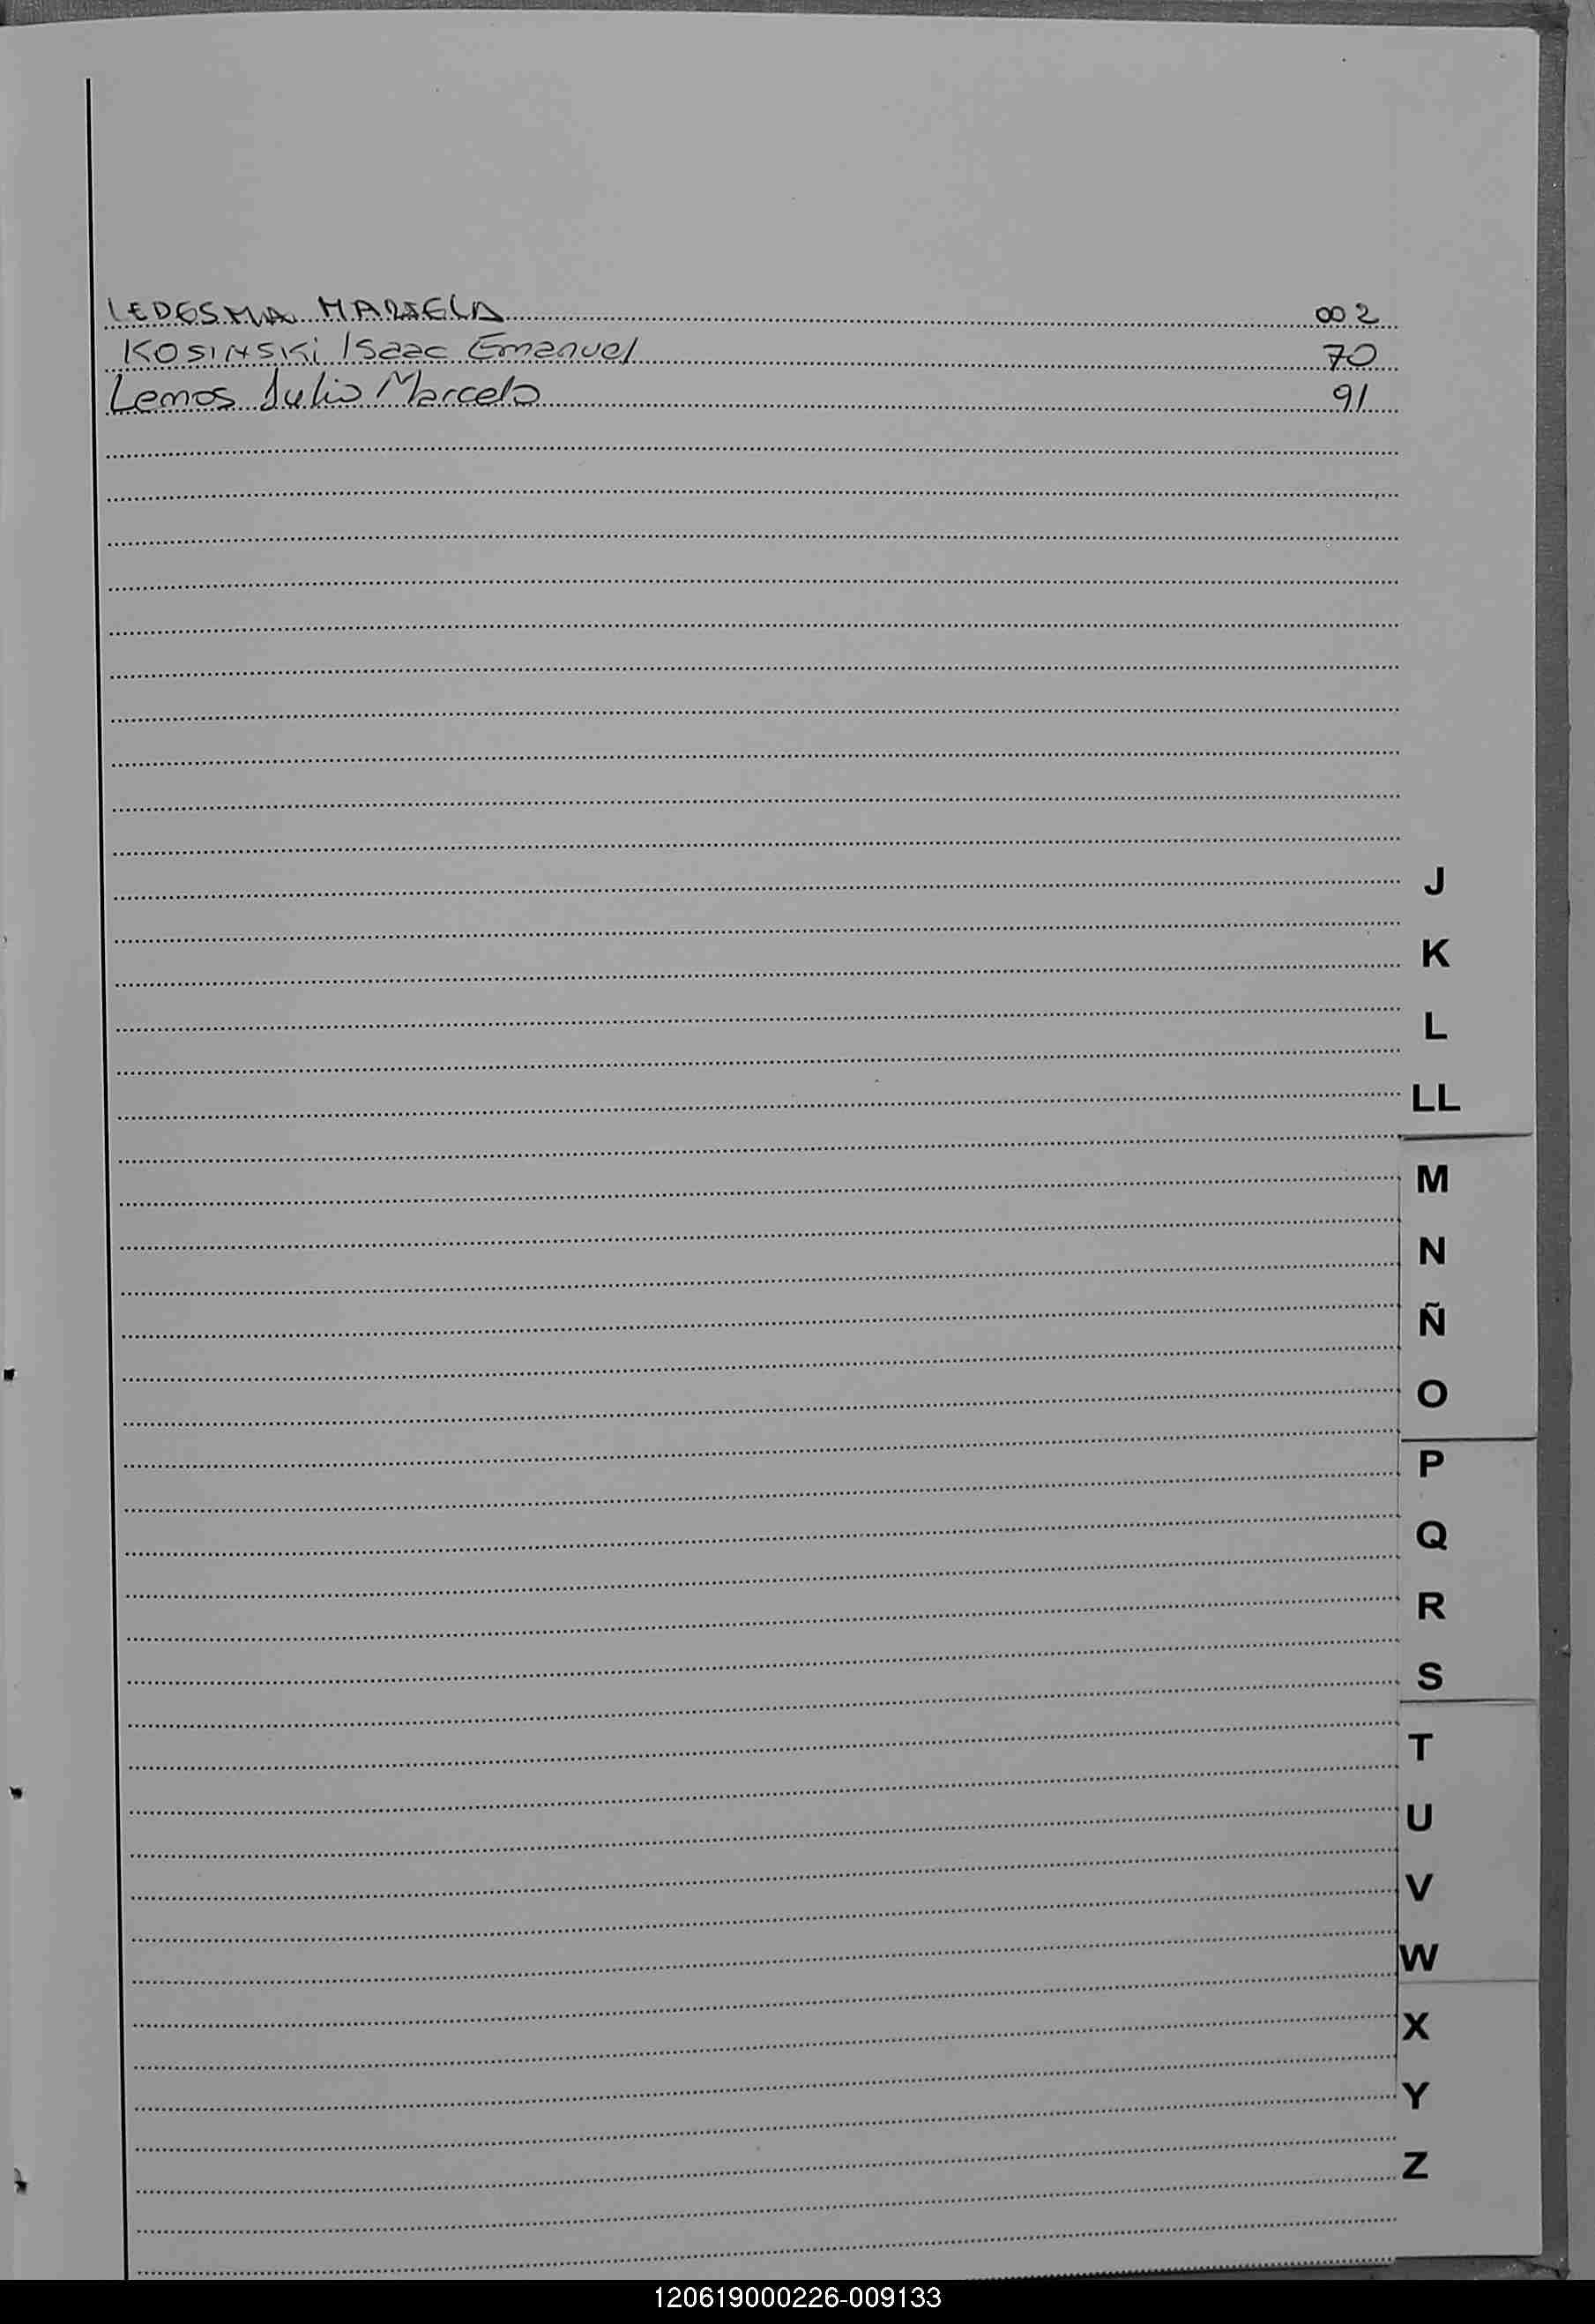 LEDESMA MARIELA 002
KOSINSKI Isaac Emanuel 70
Lemos Julio Marcelo 91
J
K
L
LL
M
N
Ñ
O
P
Q
R
S
T
U
V
W
X
Y
Z
120619000226-009133